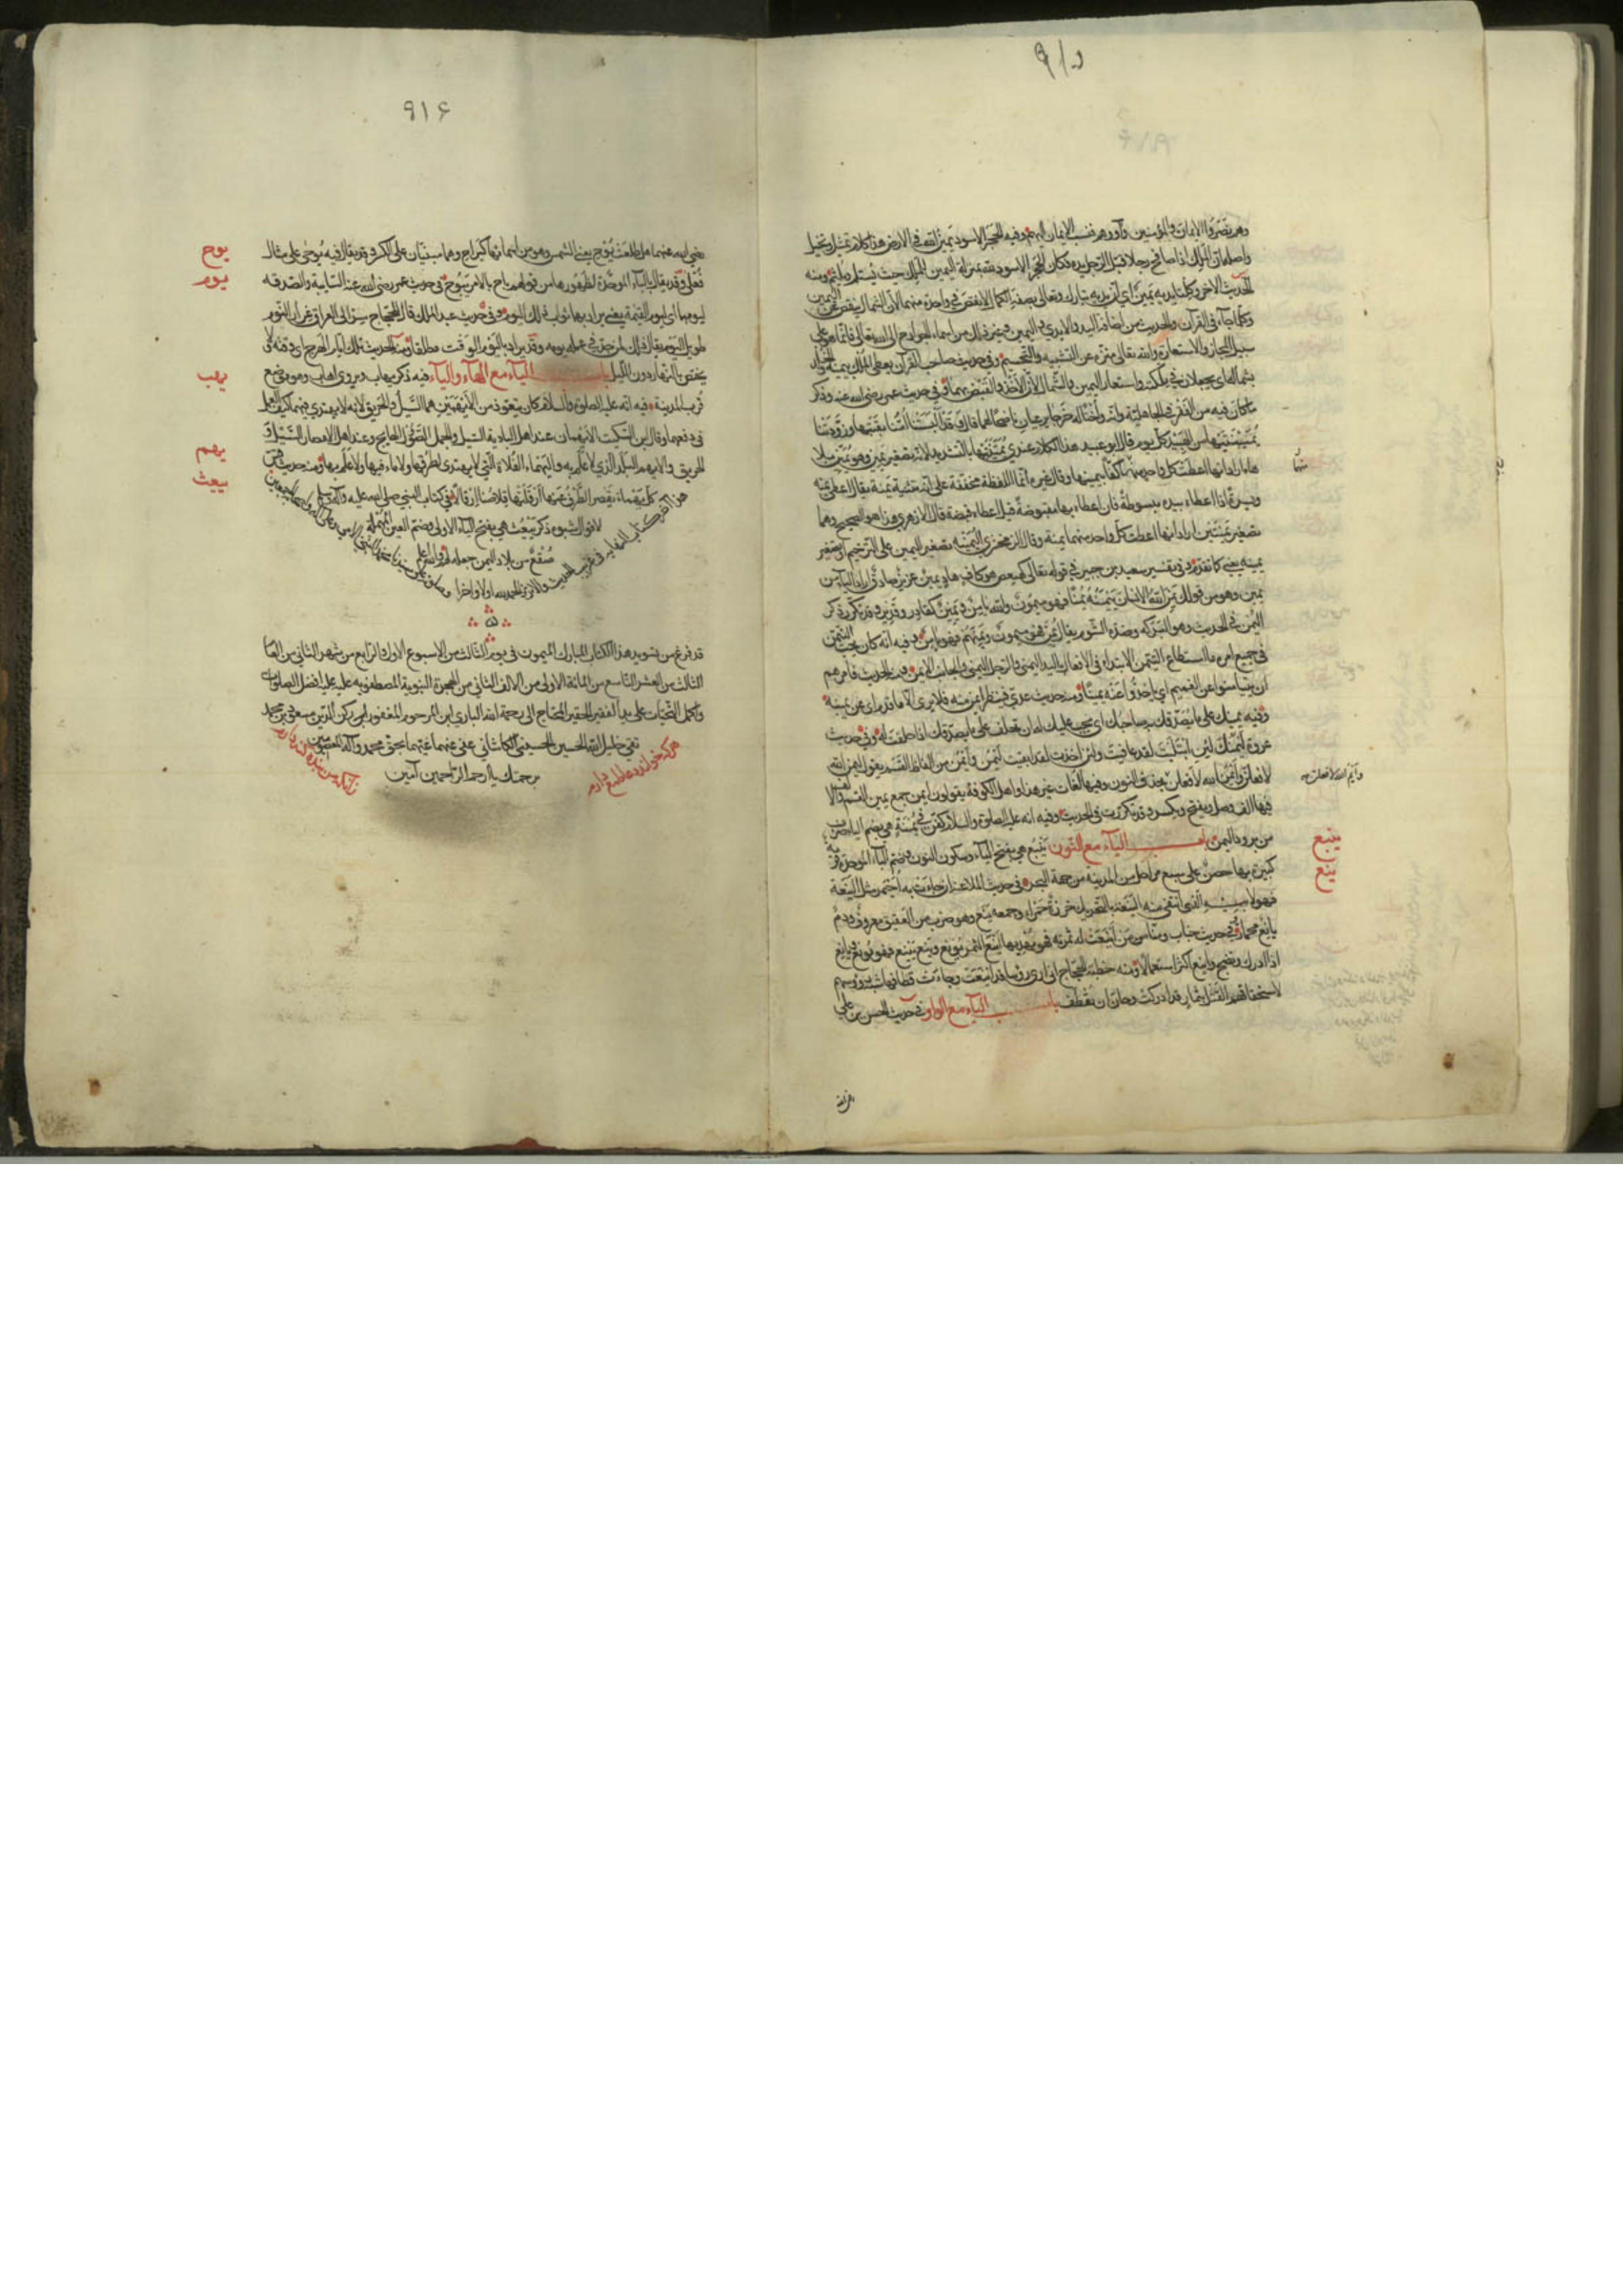 ٩١٥
وهم نصروا الايمان والمؤمنين وآووهم فنسب الايمان اليهم وفيه الحجر الاسود يمين الله في الارض هذا كلام تمثيل وتخييل
واصله ان الملك اذا صافح رجلا قبّل الرجل يده فكان الحجر الاسود لله بمنزلة اليمين للملك حيث يُستلم ويُلثم ومنه
الحديث الآخر وكلتا يديه يمين اي ان يديه تبارك وتعالى بصفة الكمال لا نقص في واحدة منهما لان الشمال ينقص عن اليمين
وكلما جاء في القرآن والحديث من اضافة اليد والايدي واليمين وغير ذلك من اسماء الجوارح الى الله تعالى فانما هو على
سبيل المجاز والاستعارة والله تعالى منزّه عن التشبيه والتجسيم وفي حديث صاحب القرآن يعطى الملك بيمينه والخلد
بشماله اي يجعلان في ملكته واستعار اليمين والشمال لان الاخذ والقبض بهما وفي حديث عمر رضي الله عنه وذكر
ما كان فيه من الفقر في الجاهلية وانه واختا له خرجا يرعيان ناضحا لهما قال وقد البستنا امّنا نقبتها وزوّدتنا
يُمَيْنَتَيْها من الهبيد كلّ يوم قال ابو عبيد هذا الكلام عندي يُمَيِّنَتَيْها بالتشديد لانه تصغير يمين وهو يُمَيِّن بلا
هاء اراد انها اعطت كل واحد منهما كفًّا بيمينها وقال غيره انما اللفظة مخففة على انه تثنية يمنة يقال اعطى يمنة
ويسرة اذا اعطاه بيده مبسوطة فان اعطاه بها مقبوضة قيل اعطاه قبضة قال الازهري هذا هو الصحيح وهما
تصغير يمنتين اراد انها اعطت كل واحد منهما يمنة وقال الزمخشري اليمينة تصغير اليمين على الترخيم او تصغير
يمنة يعني كما تقدّم وفي تفسير سعيد بن جبير في قوله تعالى كهيعص هو كاف هاد يمين عزيز صادق اراد الياء من
يمين وهو من قولك يمن الله الانسان ييمنه يمنا فهو ميمون والله يامن ويمين كقادر وقدير وقد تكرر ذكر
اليُمن في الحديث وهو البركة وضده الشؤم يقال يُمِن فهو ميمون ويَمَنهم فهو يامن وفيه انه كان يحب التيمّن
في جميع امره ما استطاع التيمن الابتداء في الافعال باليد اليمنى والرجل اليمنى والجانب الايمن ومنه الحديث فامرهم
ان يتيامنوا عن الغميم اي ياخذوا عنه يمينا ومنه حديث عدي فينظر ايمن منه فلا يرى الا ما قدم اي عن يمينه
وفيه يمينك على ما يصدّقك به صاحبك اي يجب عليك ان تحلف له على ما يصدّقك اذا حلفت له وفي حديث
عروة ليمنك لئن ابتليت لقد عافيت ولئن اخذت لقد ابقيت ليمن وايمن من الفاظ القسم يقول ليمن الله
لافعلن وايمن الله لافعلن بحذف النون وفيها لغات غير هذا واهل الكوفة يقولون ايمن جمع يمين القسم والالف
فيها الف وصل ويفتح ويكسر وقد تكررت في الحديث وفيه انه عليه الصلوة والسلام كفن في يُمنة هي بضم الياء ضرب
من برود اليمن باب الياء مع النون ينبع هي بفتح الياء وسكون النون وضم الباء الموحدة قرية
كبيرة بها حصن على سبع مراحل من المدينة من جهة البحر في حديث الملاعنة ان جاءت به احيمر مثل الينعة
فهو لابيه الذي انتفى منه الينعة بالتحريك خرزة حمراء وجمعه ينع وهو ضرب من العقيق معروف ودم
يانع محمارّ وفي حديث خباب ومنا من اينعت له ثمرته فهو يهدبها اينع الثمر يونع وينع ييِنع فهو مونع ويانع
اذا ادرك ونضج واينع اكثر استعمالا ومنه خطبة الحجاج اني ارى رؤسا قد اينعت وحان قطافها شبه رؤسهم
لاستحقاقهم القتل بثمار قد ادركت وحان ان تقطف باب الياء مع الواو في حديث الحسن بن علي
وايم الله لافعلن
ينبع
ينع
٩١۶
رضي الله عنهما هل طلعت يوح يعني الشمس وهو من اسمائها كبراح وهما مبنيان على الكسر وقد يقال فيه يوحى على مثال
فُعلى وقد يقال بالباء الموحدة لظهورها من قولهم باح بالامر يبوح في حديث عمر رضي الله عنه السايبة والصدقة
ليومهما اي ليوم القيمة يعني يراد بهما ثواب ذلك اليوم وفي حديث عبد الملك قال للحجاج سر الى العراق غرار النوم
طويل اليوم يقال ذلك لمن جدّ في عمله يومه وقد يراد باليوم الوقت مطلقا ومنه الحديث تلك ايام الهرج اي وقته لا
يختص بالنهار دون الليل باب الياء مع الهاء والياء فيه ذكر يهاب ويروى اهاب وهو موضع
قرب المدينة فيه انه عليه الصلوة والسلام كان يتعوذ من الايهمين هما السيل والحريق لانه لا يهتدى فيهما كيف العمل
في دفعهما وقال ابن السكيت الايهمان عند اهل البادية السيل والجمل الصؤول الهايج وعند اهل الامصار السيل و
الحريق والايهم البلد الذي لا علم به واليهماء الفلاة التي لا يهتدى لطرقها ولا ماء فيها ولا علم بها ومنه حديث قس
كل يهماء يقصر الطرف عنها ارقلتها قلاصنا ارقالا في كتاب النبي صلى الله عليه وآله وسلم
لاقوال شبوه ذكر ييعث هي بفتح الياء الاولى وضم العين المهملة
صقع من بلاد اليمن جعله لهم والله اعلم
هذا آخر كتاب النهاية في غريب الحديث والاثر والحمد لله اولا وآخرا
قد فرغ من تسويد هذا الكتاب المبارك الميمون في يوم الثالث من الاسبوع الاول الرابع من شهر الثاني من العام
الثالث من العشر التاسع من المائة الاولى من الالف الثاني من الهجرة النبوية المصطفوية عليه افضل الصلوات
واكمل التحيات على يد الفقير الحقير المحتاج الى رحمة الله الباري ابن المرحوم المغفور ركن الدين مسعود بن محمد
تقي خليل الله الحسين الحسيني الكاشاني عفي عنهما بحق محمد وآله المعصومين
برحمتك يا ارحم الراحمين آمين
هر که خواند دعا طمع دارم
زانکه من بنده گنه کارم
يوح
يوم
يهب
يهم
ييعث